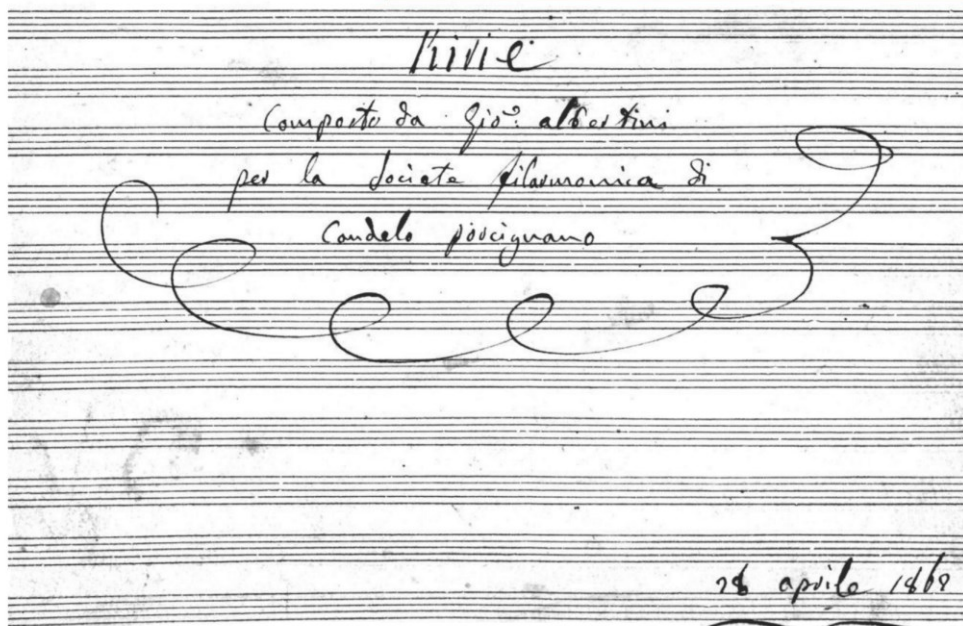 Kirie
Composto da Gio.e albertini
per la Societa filarmonica di
Candelo
28 aprile 1862